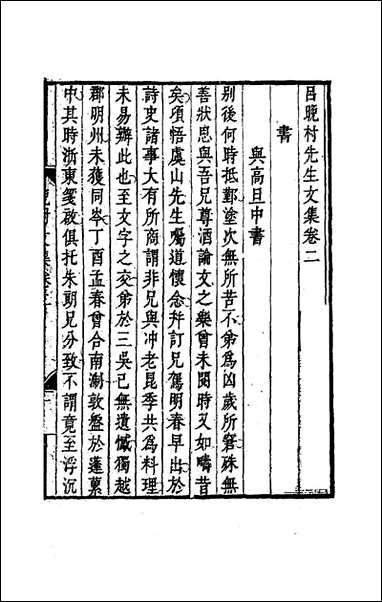 呂晚村先生文集卷二
書
與高旦中書
别後何時抵鄞塗次無所苦不弟爲凶歲所窘殊無
善狀思與吾兄尊酒論文之樂曾未閱時又如疇昔
矣頃悟虞山先生囑道懷念幷訂兄駕明春早出於
詩史諸事大有所商謂非兄與冲老昆季共爲料理
未易辦此也至文字之交弟於三吳已無遺憾獨越
郡明州未獲同岑丁酉孟春曾合南浙敦盤於蓬藁
中其時浙東箋啟俱托朱朗兄分致不謂竟至浮沉